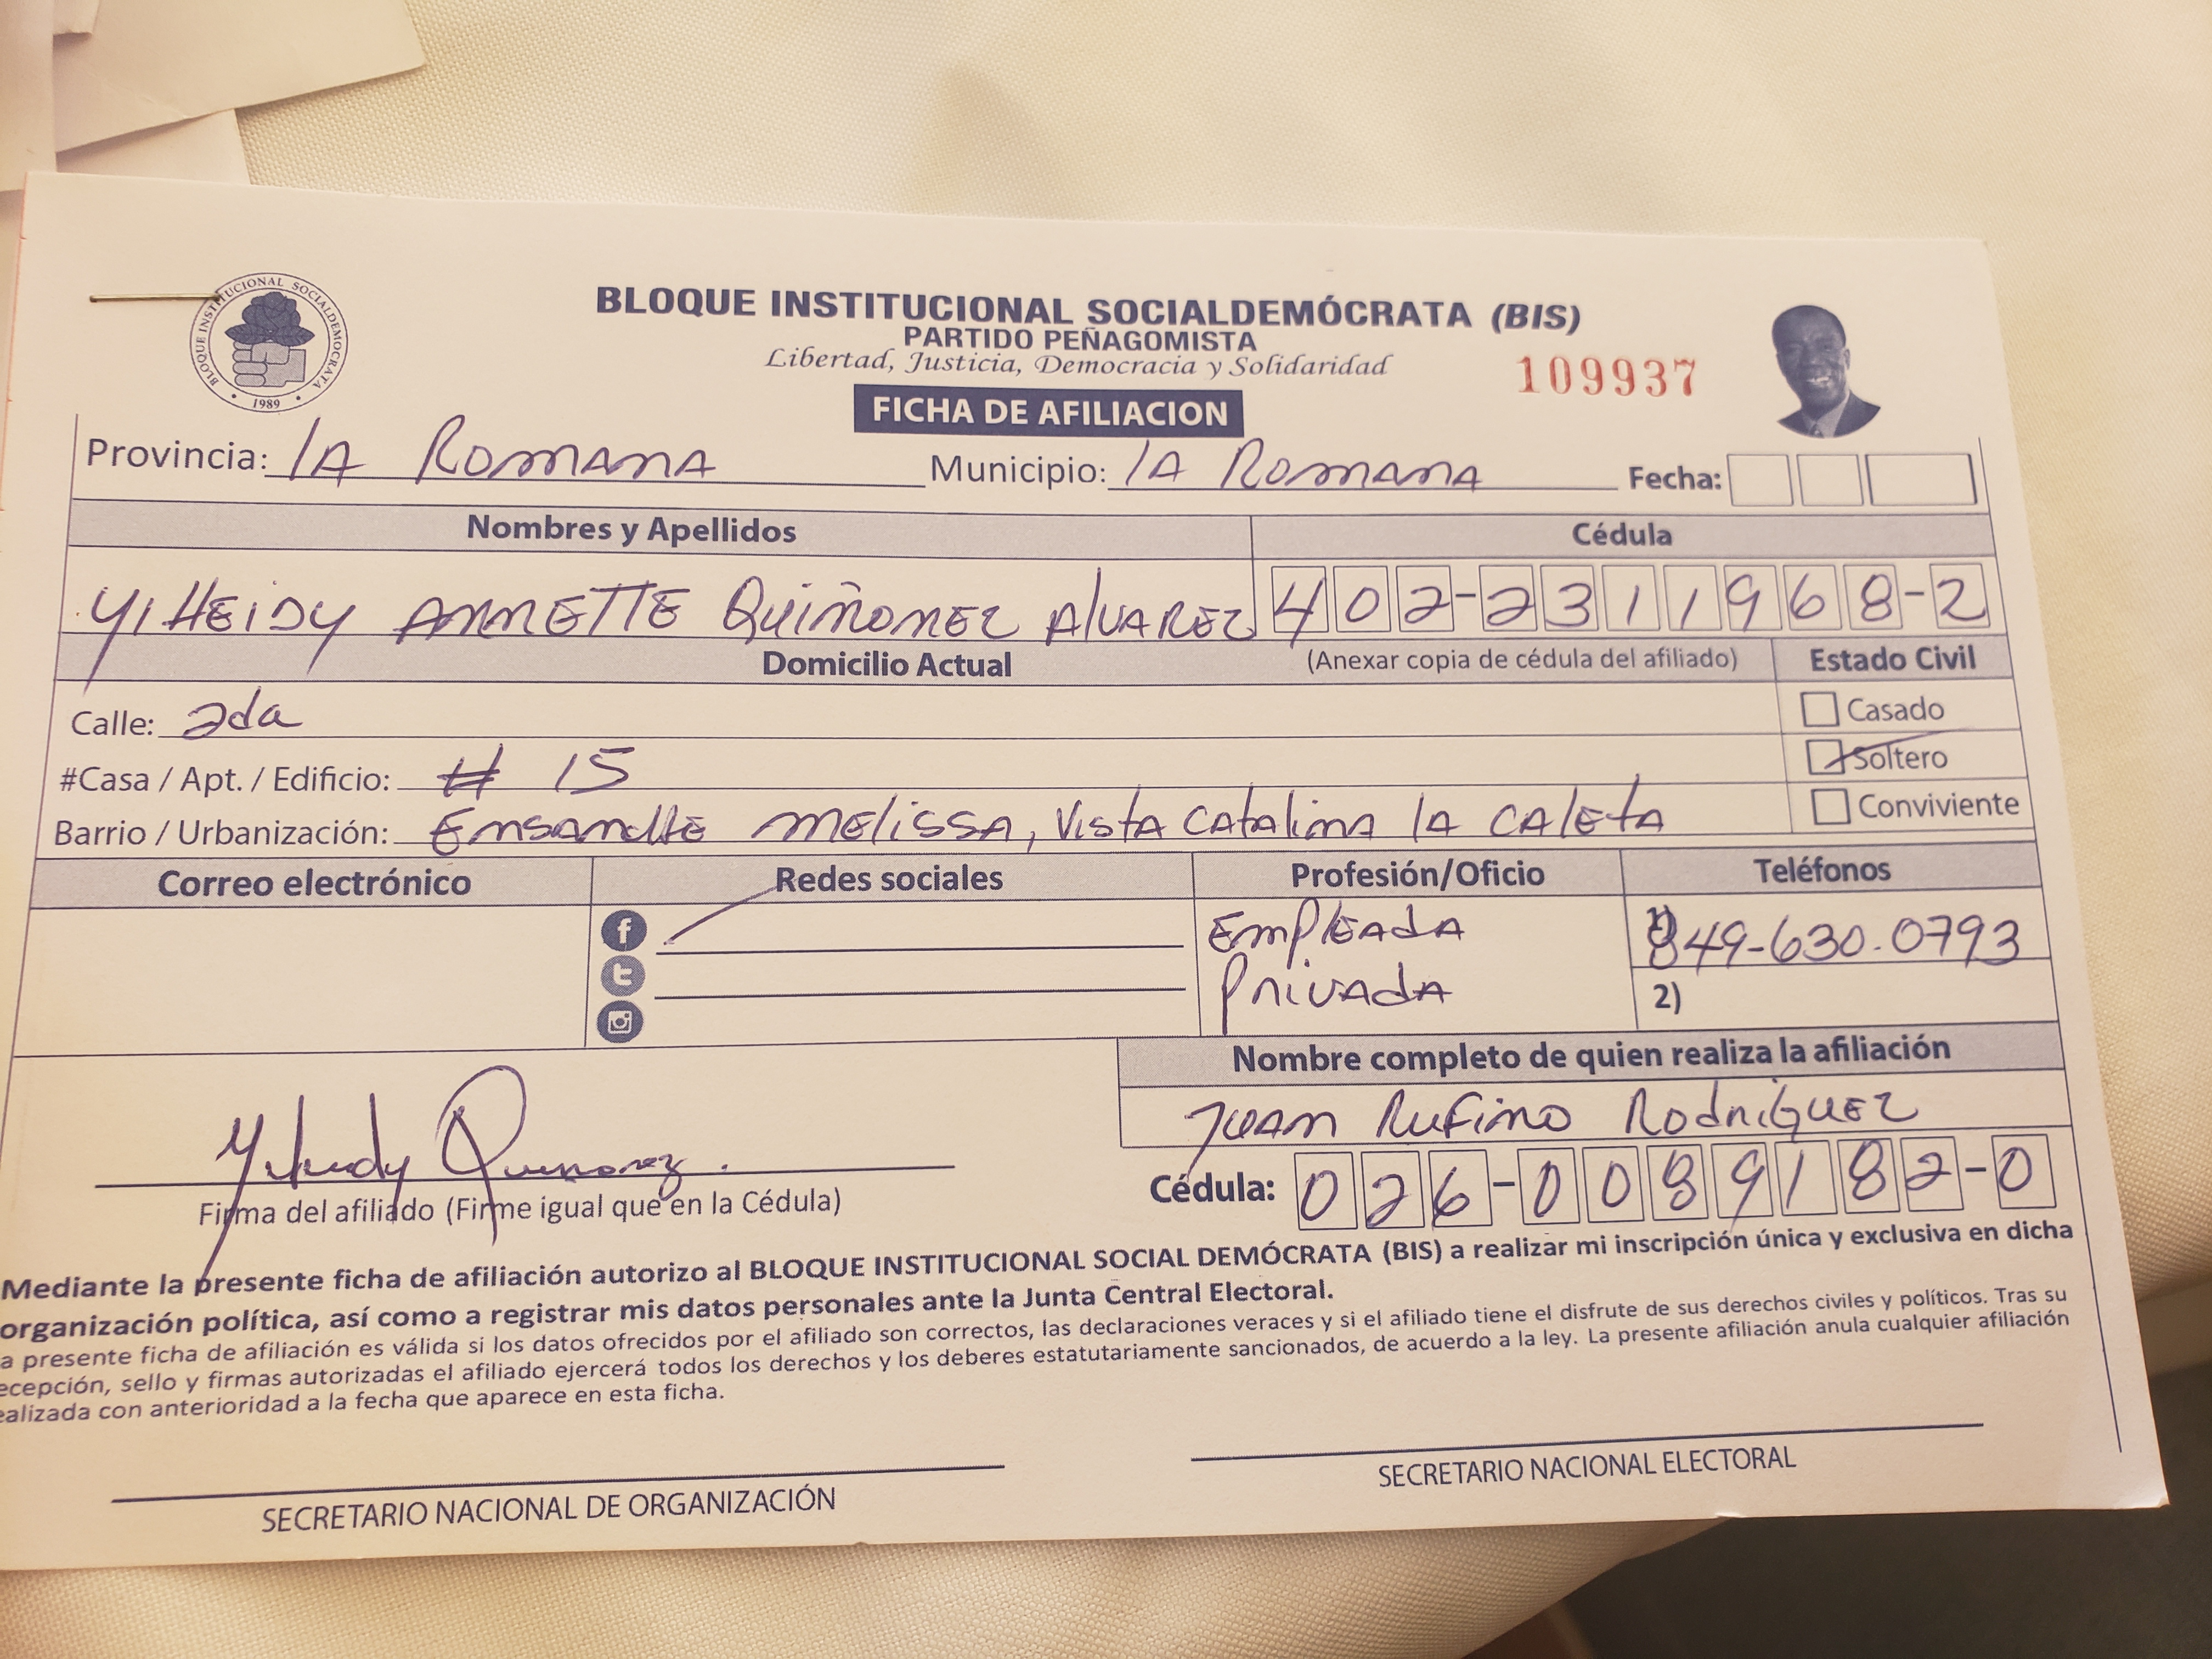 BLOQUE INSTITUCIONAL SOCIALDEMOCRATA
1989
BLOQUE INSTITUCIONAL SOCIALDEMÓCRATA (BIS)
PARTIDO PEÑAGOMISTA
Libertad, Justicia, Democracia y Solidaridad
109937
FICHA DE AFILIACION
Provincia: lA ROMANA Municipio: lA ROMANA Fecha:
Nombres y Apellidos Cédula
YIHEIDY ANNETTE QUIÑONEZ AlVAREZ 402-2311968-2
Domicilio Actual (Anexar copia de cédula del afiliado) Estado Civil
Calle: 2da Casado
#Casa / Apt. / Edificio: # 15 Soltero
Barrio / Urbanización: ENSANCHE MELISSA, VISTA CATALINA lA CALETA Conviviente
Correo electrónico Redes sociales Profesión/Oficio Teléfonos
EMPLEADA 1) 849-630.0793
PRIVADA 2)
Nombre completo de quien realiza la afiliación
JUAN RUFINO RODRIGUEZ
Quinonez.
Cédula: 026-0089182-0
Firma del afiliado (Firme igual que en la Cédula)
Mediante la presente ficha de afiliación autorizo al BLOQUE INSTITUCIONAL SOCIAL DEMÓCRATA (BIS) a realizar mi inscripción única y exclusiva en dicha
organización política, así como a registrar mis datos personales ante la Junta Central Electoral.
a presente ficha de afiliación es válida si los datos ofrecidos por el afiliado son correctos, las declaraciones veraces y si el afiliado tiene el disfrute de sus derechos civiles y políticos. Tras su
ecepción, sello y firmas autorizadas el afiliado ejercerá todos los derechos y los deberes estatutariamente sancionados, de acuerdo a la ley. La presente afiliación anula cualquier afiliación
ealizada con anterioridad a la fecha que aparece en esta ficha.
SECRETARIO NACIONAL DE ORGANIZACIÓN SECRETARIO NACIONAL ELECTORAL